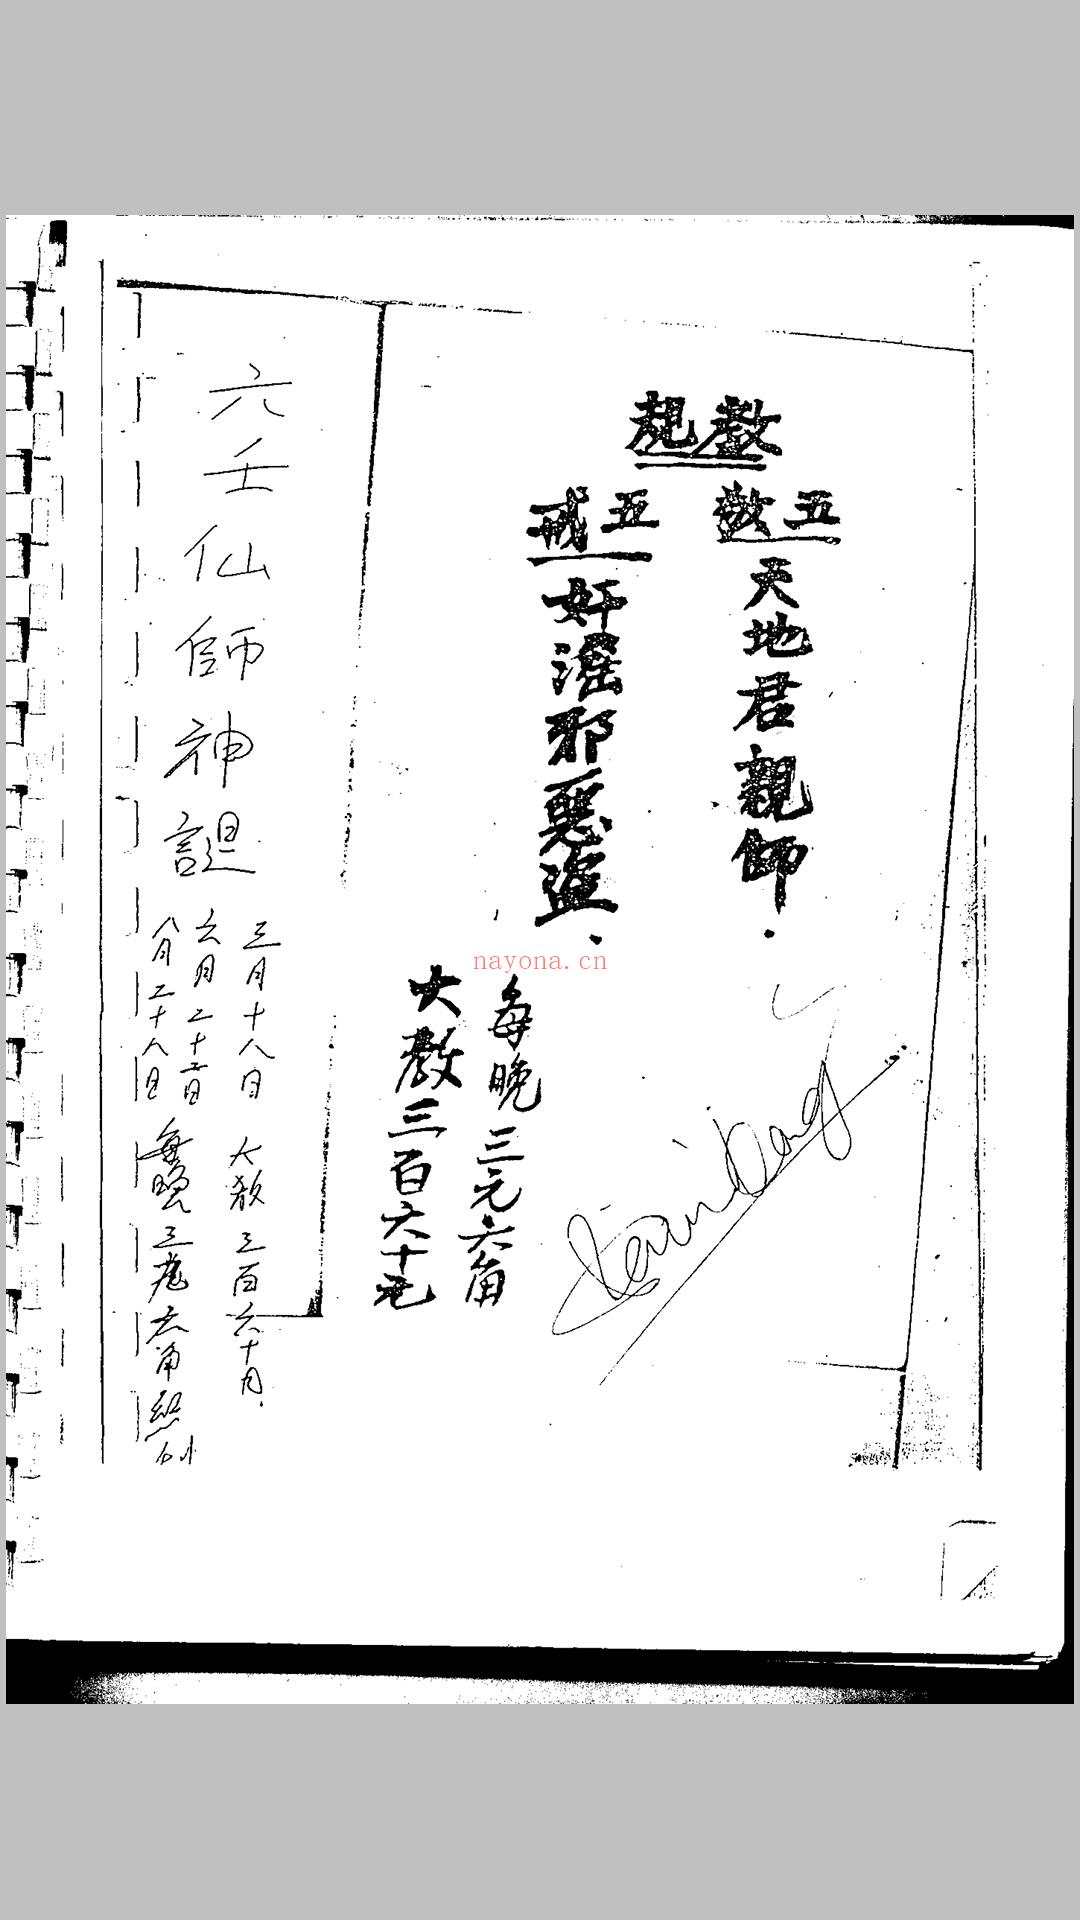 教規
五敬
天地君親師.
五戒
奸滛邪惡盜.
每晚三元六角
大教三百六十元
六壬仙師神誕
三月十八日
六月二十二日
八月二十八日
大教三百六十月.
每晚三 六角
nayona.cn